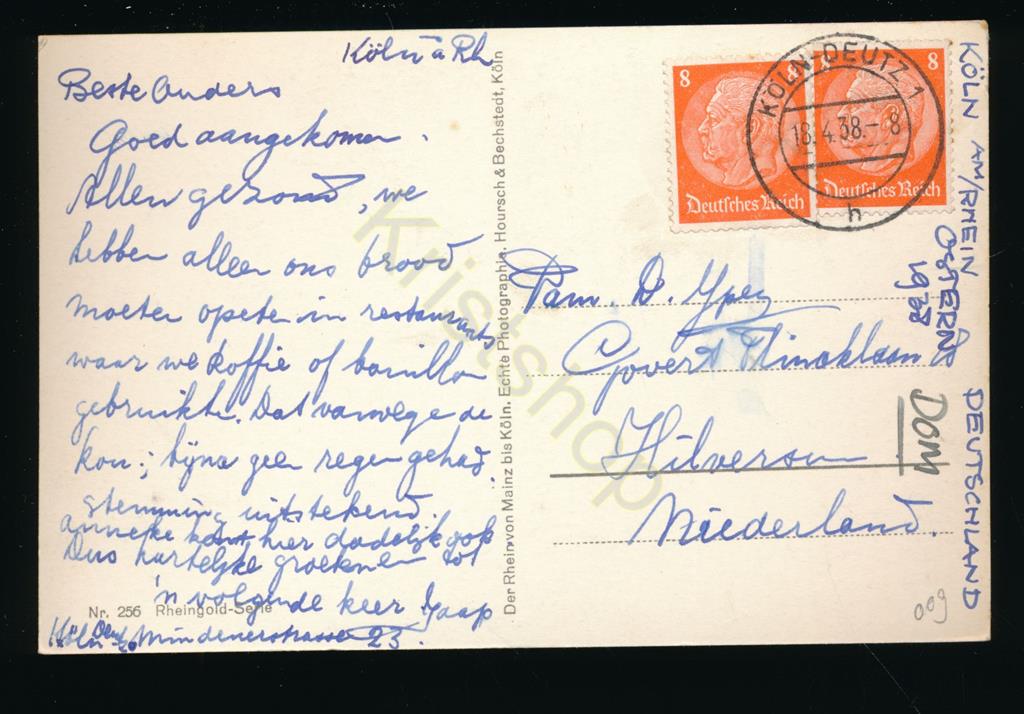 Köln a Rh
Beste Ouders
Goed aangekomen.
Allen gezond, we
hebben alleen ons brood
moeten opeten in restaurants
waar we koffie of bouillon
gebruikte. Dat vanwege de
kou; bijna geen regen gehad
stemming uitstekend.
anneke komt hier dadelijk ook
Dus hartelijke groeten en tot
'n volgende keer Jaap
Nr. 256 Rheingold-Serie
Köln Mindenerstrasse 23.
Der Rhein von Mainz bis Köln. Echte Photographie. Hoursch & Bechstedt, Köln
8
8
Deutsches Reich
Deutsches Reich
KÖLN-DEUTZ 1
18.4.38.-8
h
Fam. D. Ypey
Govert Flincklaan
Hilversum
Niederland.
KÖLN AM/RHEIN DEUTSCHLAND
OSTERN
1938
Dom
009
Kristshop